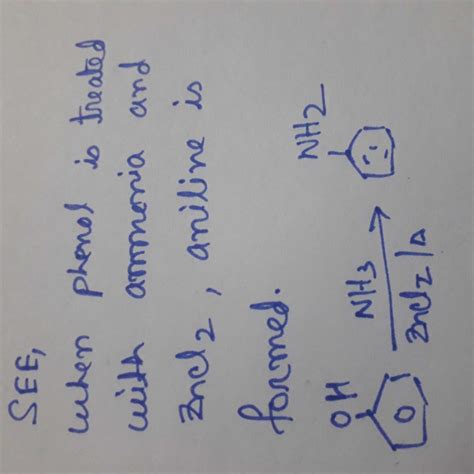 SEE,
when phenol is treated
with ammonia and
ZnCl2, aniline is
formed.
OH NH3 NH2
ZnCl2/Δ